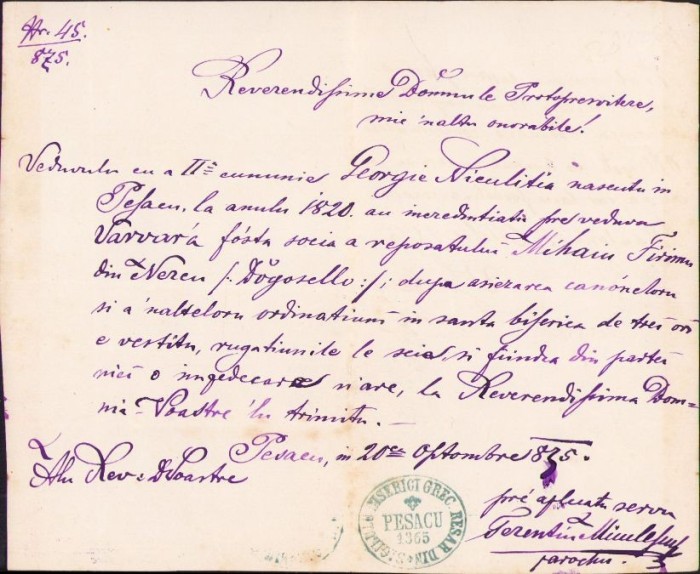 Nr. 45.
875.
Reverendissime Dómnule Protopresvitere,
mie 'naltu onorabile!
Veduvulu cu a IIa cununie Georgie Niculitia nascutu in
Pesacu, la anulu 1820. au incredintiatu pre veduva
Varvar'a fósta socia a reposatului Mihaiu Firimu
din Nereu /: Dógosello :/; dupa asiezarea canóneloru
si a 'nalteloru ordinatiuni in santa biserica de trei ori
e vestitu, rugatiunile le scie, si fiindca din partea
mea o impedecare n'are, la Reverendissima Dom=
nia-Voastre 'lu trimitu. —
Pesacu, in 20ea Optombre 875.
Alu Rev= D Voastre
pré aplecatu servu
Terentiu Miculescu
parochu.
SIGILUL BISERICI GREC. RESAR DIN
PESACU
1365